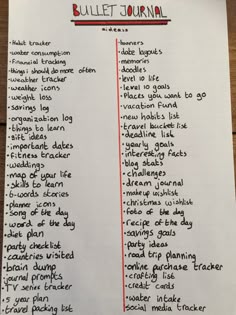 BULLET JOURNAL
•ideas•
•Habit tracker
•water consumption
•Financial tracking
•things i should do more often
•weather tracker
•weather icons
•weight loss
•savings log
•organization log
•things to learn
•gift ideas
•important dates
•fitness tracker
•weddings
•map of your life
•skills to learn
•6-words stories
•planner icons
•song of the day
•word of the day
•diet plan
•party checklist
•countries visited
•brain dump
•journal prompts
•TV series tracker
•5 year plan
•travel packing list
•banners
•date layouts
•memories
•doodles
•level 10 life
•level 10 goals
•Places you want to go
•vacation fund
•new habits list
•travel bucket list
•deadline list
•yearly goals
•interesting facts
•blog stats
•challenges
•dream journal
•makeup wishlist
•christmas wishlist
•foto of the day
•recipe of the day
•savings goals
•party ideas
•road trip planning
•online purchase tracker
•crafting list
•credit cards
•water intake
•social media tracker